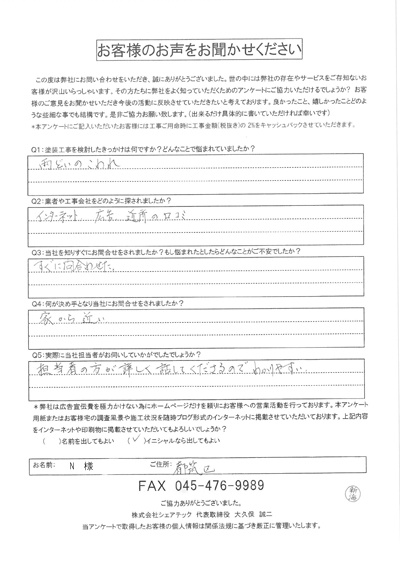 お客様のお声をお聞かせください
この度は弊社にお問い合わせをいただき、誠にありがとうございました。世の中には弊社の存在やサービスをご存知ないお
客様が沢山いらっしゃいます。その方たちに弊社をよく知っていただくためのアンケートにご協力いただけるでしょうか? お客
様のご意見をお聞かせいただき今後の活動に反映させていただきたいと考えております。良かったこと、嬉しかったことどのよ
うな些細な事でも結構です。是非ご協力お願い致します。(出来るだけ具体的に書いていただければ幸いです)
*本アンケートにご記入いただいたお客様には工事ご用命時に工事金額(税抜き)の2%をキャッシュバックさせていただきます。
Q1:塗装工事を検討したきっかけは何ですか?どんなことで悩まれていましたか?
雨どいのこわれ
Q2:業者や工事会社をどのように探されましたか?
インターネット 広告 近所の口コミ
Q3:当社を知りすぐにお問合せをされましたか?もし悩まれたとしたらどんなことがご不安でしたか?
すぐに問合わせた。
Q4:何が決め手となり当社にお問合せをされましたか?
家から近い
Q5:実際に当社担当者がお伺いしていかがでしたでしょうか?
担当者の方が詳しく話してくださるのでわかりやすい
*弊社は広告宣伝費を極力かけない為にホームページだけを頼りにお客様への営業活動を行っております。本アンケート
用紙またはお客様宅の調査風景や施工状況を随時ブログ形式のインターネットに掲載させていただいております。上記内容
をインターネットや印刷物に掲載させていただいてもよろしいでしょうか?
( )名前を出してもよい (✓)イニシャルなら出してもよい
お名前: N 様 ご住所: 都筑区
FAX 045-476-9989
ご協力ありがとうございました。
株式会社シェアテック 代表取締役 大久保 誠二
当アンケートで取得したお客様の個人情報は関係法規に基づき厳正に管理いたします。